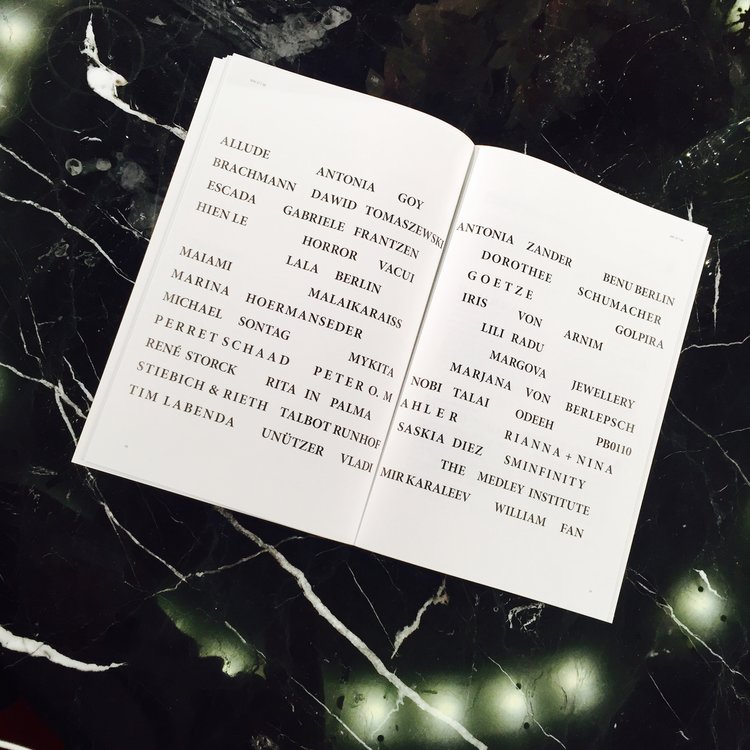 ALLUDE ANTONIA GOY ANTONIA ZANDER BENU BERLIN
BRACHMANN DAWID TOMASZEWSKI DOROTHEE SCHUMACHER
ESCADA GABRIELE FRANTZEN GOETZE GOLPIRA
HIEN LE HORROR VACUI IRIS VON ARNIM
LALA BERLIN LILI RADU
MAIAMI MALAIKARAISS MARGOVA JEWELLERY
MARINA HOERMANSEDER MARJANA VON BERLEPSCH
MICHAEL SONTAG MYKITA NOBI TALAI ODEEH PB0110
PERRET SCHAAD PETER O. MAHLER RIANNA + NINA
RENÉ STORCK RITA IN PALMA SASKIA DIEZ SMINFINITY
STIEBICH & RIETH TALBOT RUNHOF THE MEDLEY INSTITUTE
TIM LABENDA UNÜTZER VLADIMIR KARALEEV WILLIAM FAN